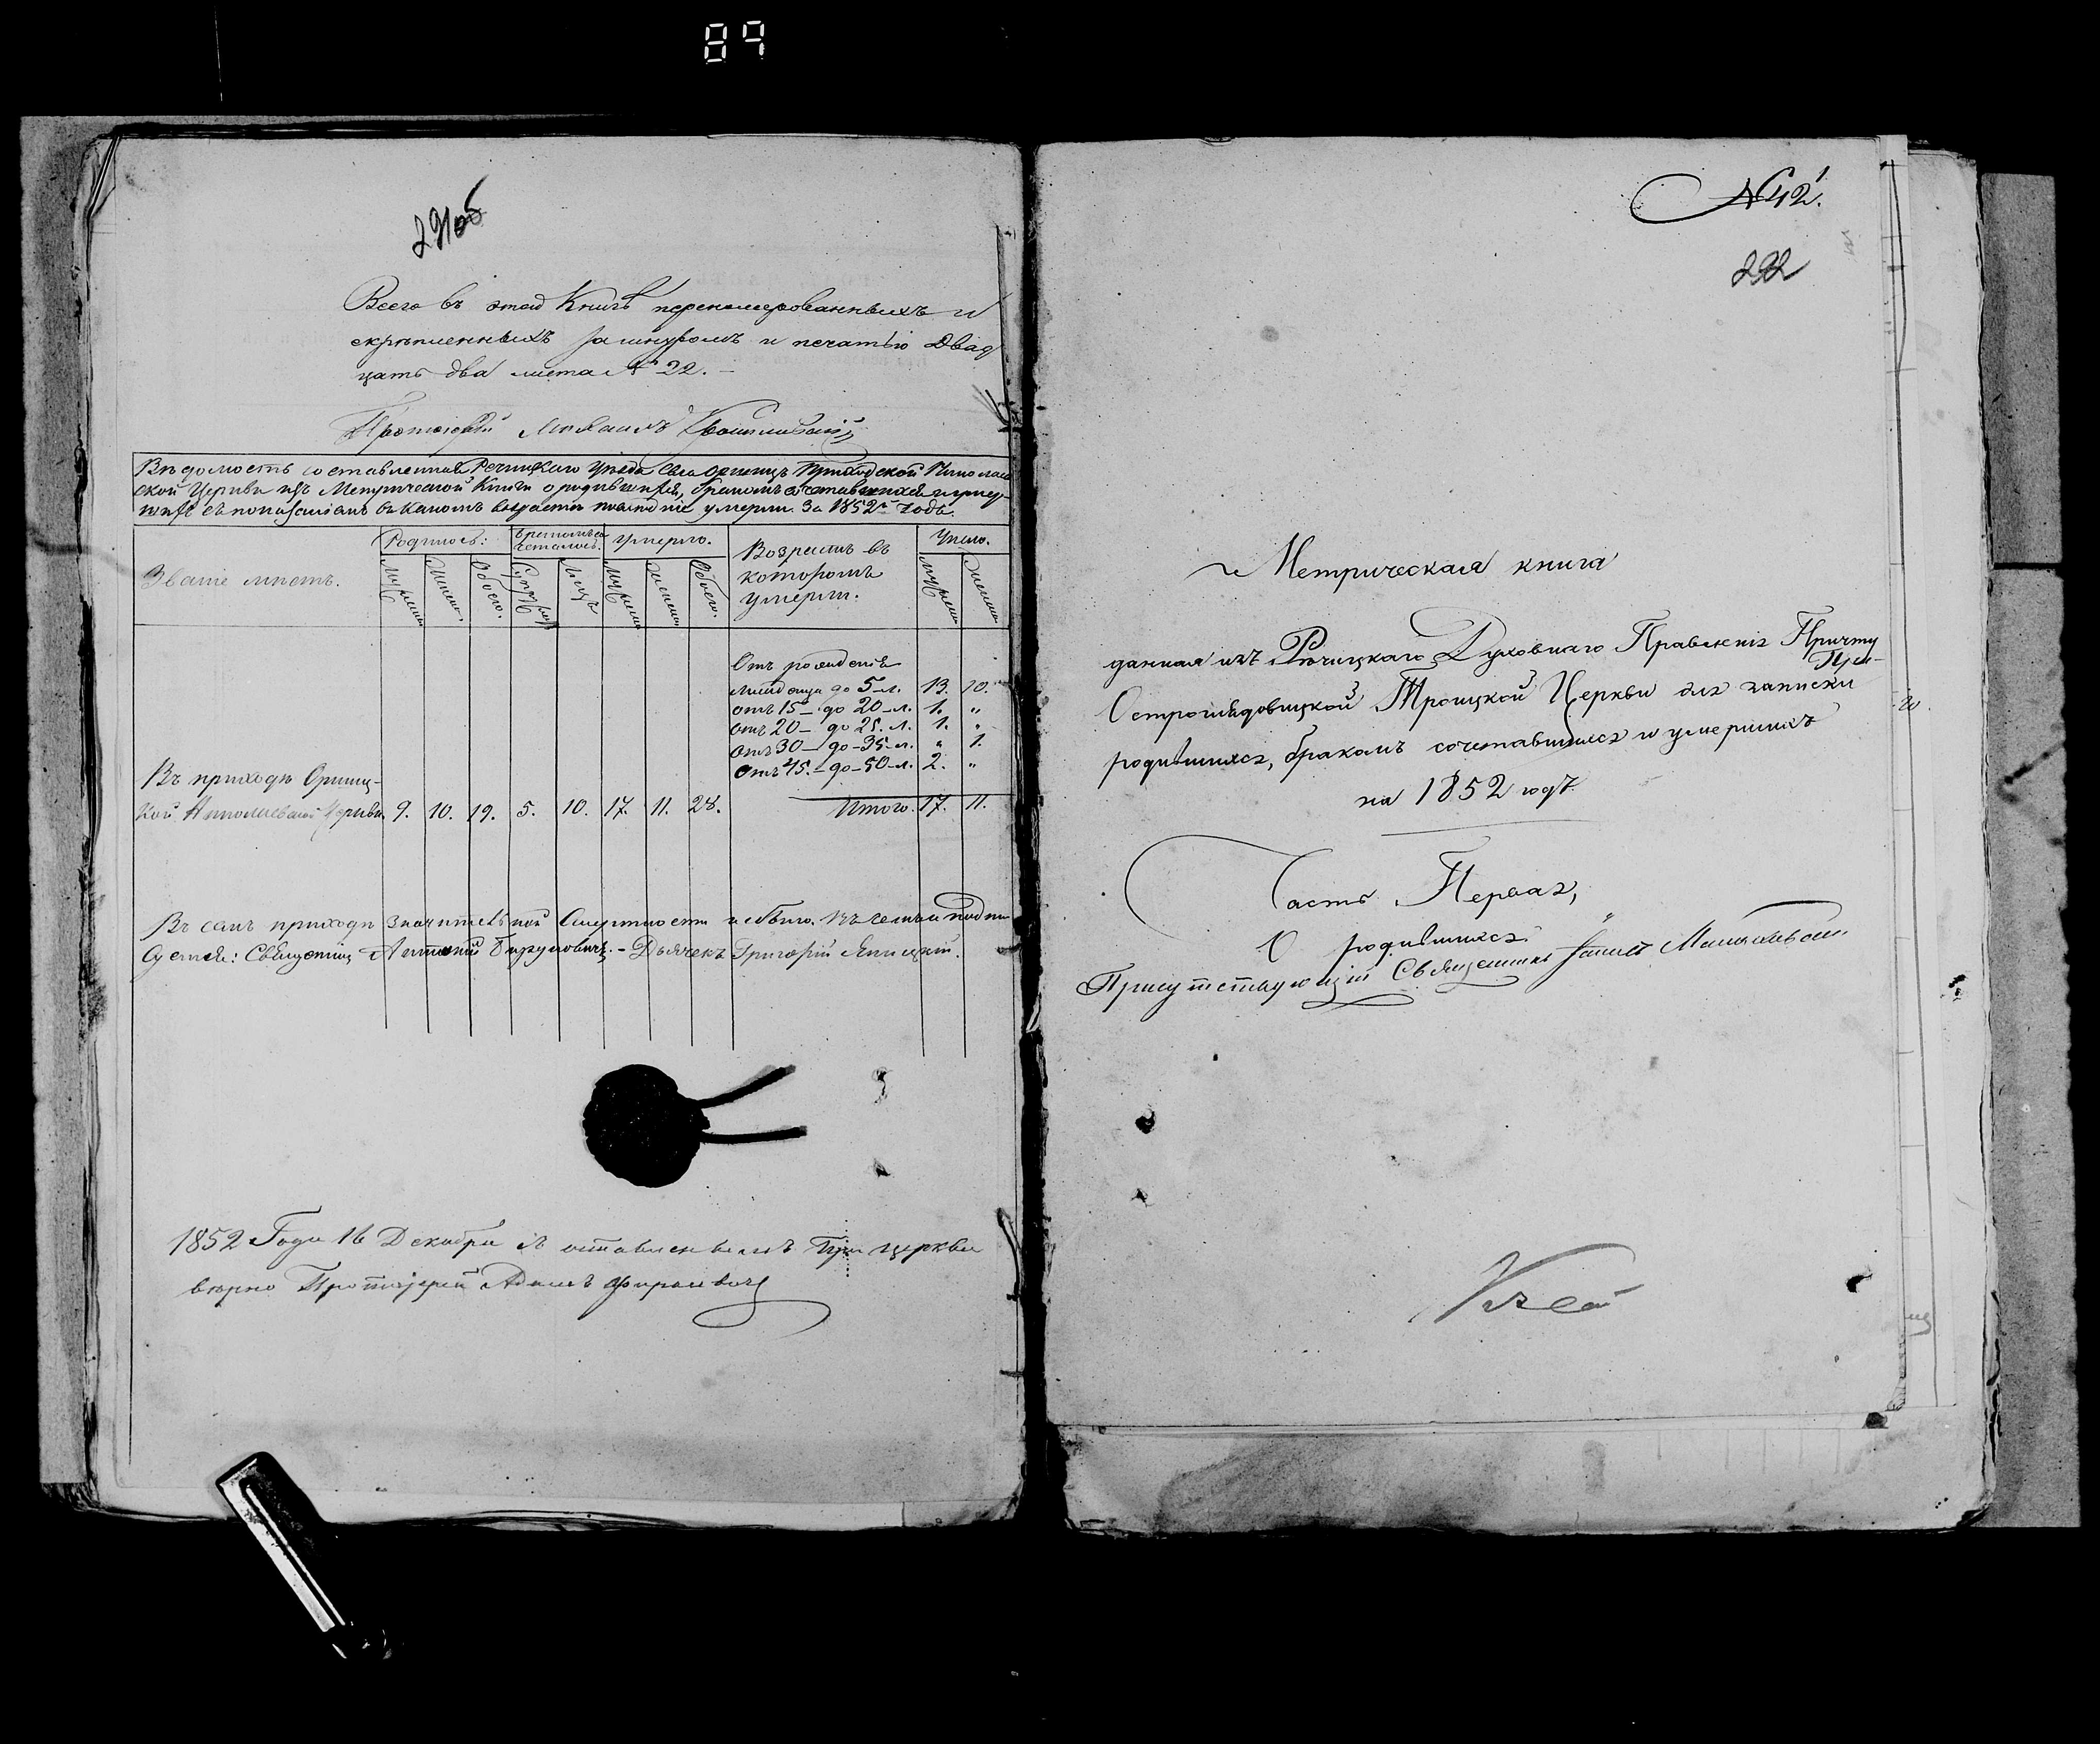 89
291об
Всего въ этой Книгѣ перенумерованныхъ и
скрѣпленныхъ за шнуромъ и печатью Двад
цать два листа № 22. –
Протоіерей Михаилъ
Вѣдомость составленная Речицкаго Уѣзда Села Приходской Николаев
ской Церкви изъ Метрической Книги о родившихся, бракомъ сочетавшихся и умер-
шихъ съ показаніемъ въ какомъ возрастѣ послѣдніе умерли. За 1852й годъ.
Званіе мѣстъ.
Родилось:
Бракомъ со
четалось.
Умерло.
Возрастъ въ
которомъ
умерли.
Число.
Мужеск.
Женск.
Обоего.
Супруж
Лицъ
Мужеск
Женск
Обоего.
Мужеск
Женск
Отъ рожденія
младенца до 5-л. 13. 10.
отъ 15 – до 20-л. 1. „
отъ 20 – до 25. л. 1. „
отъ 30 – до – 35-л. „ 1.
отъ 45. – до – 50-л. 2. „
Въ приходѣ
кой Николаевской Церкви. 9. 10. 19. 5. 10. 17. 11. 28. Итого. 17. 11.
Въ семъ приходѣ значительной Смертности небыло. Въ чемъ и подпи
Священникъ Антоній – Дьячекъ Григорій
1852 Года 16 Декабря съ оставленнымъ При церкви
вѣрно Протоіерей Адамъ
№ 42.
292
Метрическая книга
данная изъ Рѣчицкаго Духовнаго Правленія Причту
При-
Остроглядовицкой Троицкой Церкви для записки
родившихся, бракомъ сочетавшихся и умершихъ
на 1852 годъ.
Часть Первая,
О родившихся.
Присутствующій Священникъ